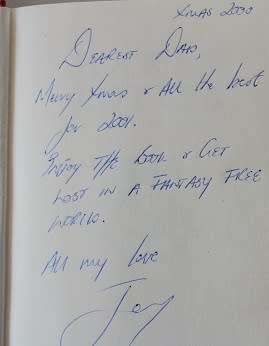 Xmas 2000
Dearest Dad,
Merry Xmas & All the best
for 2001.
Enjoy the book & Get
lost in a fantasy free
world.
All my love